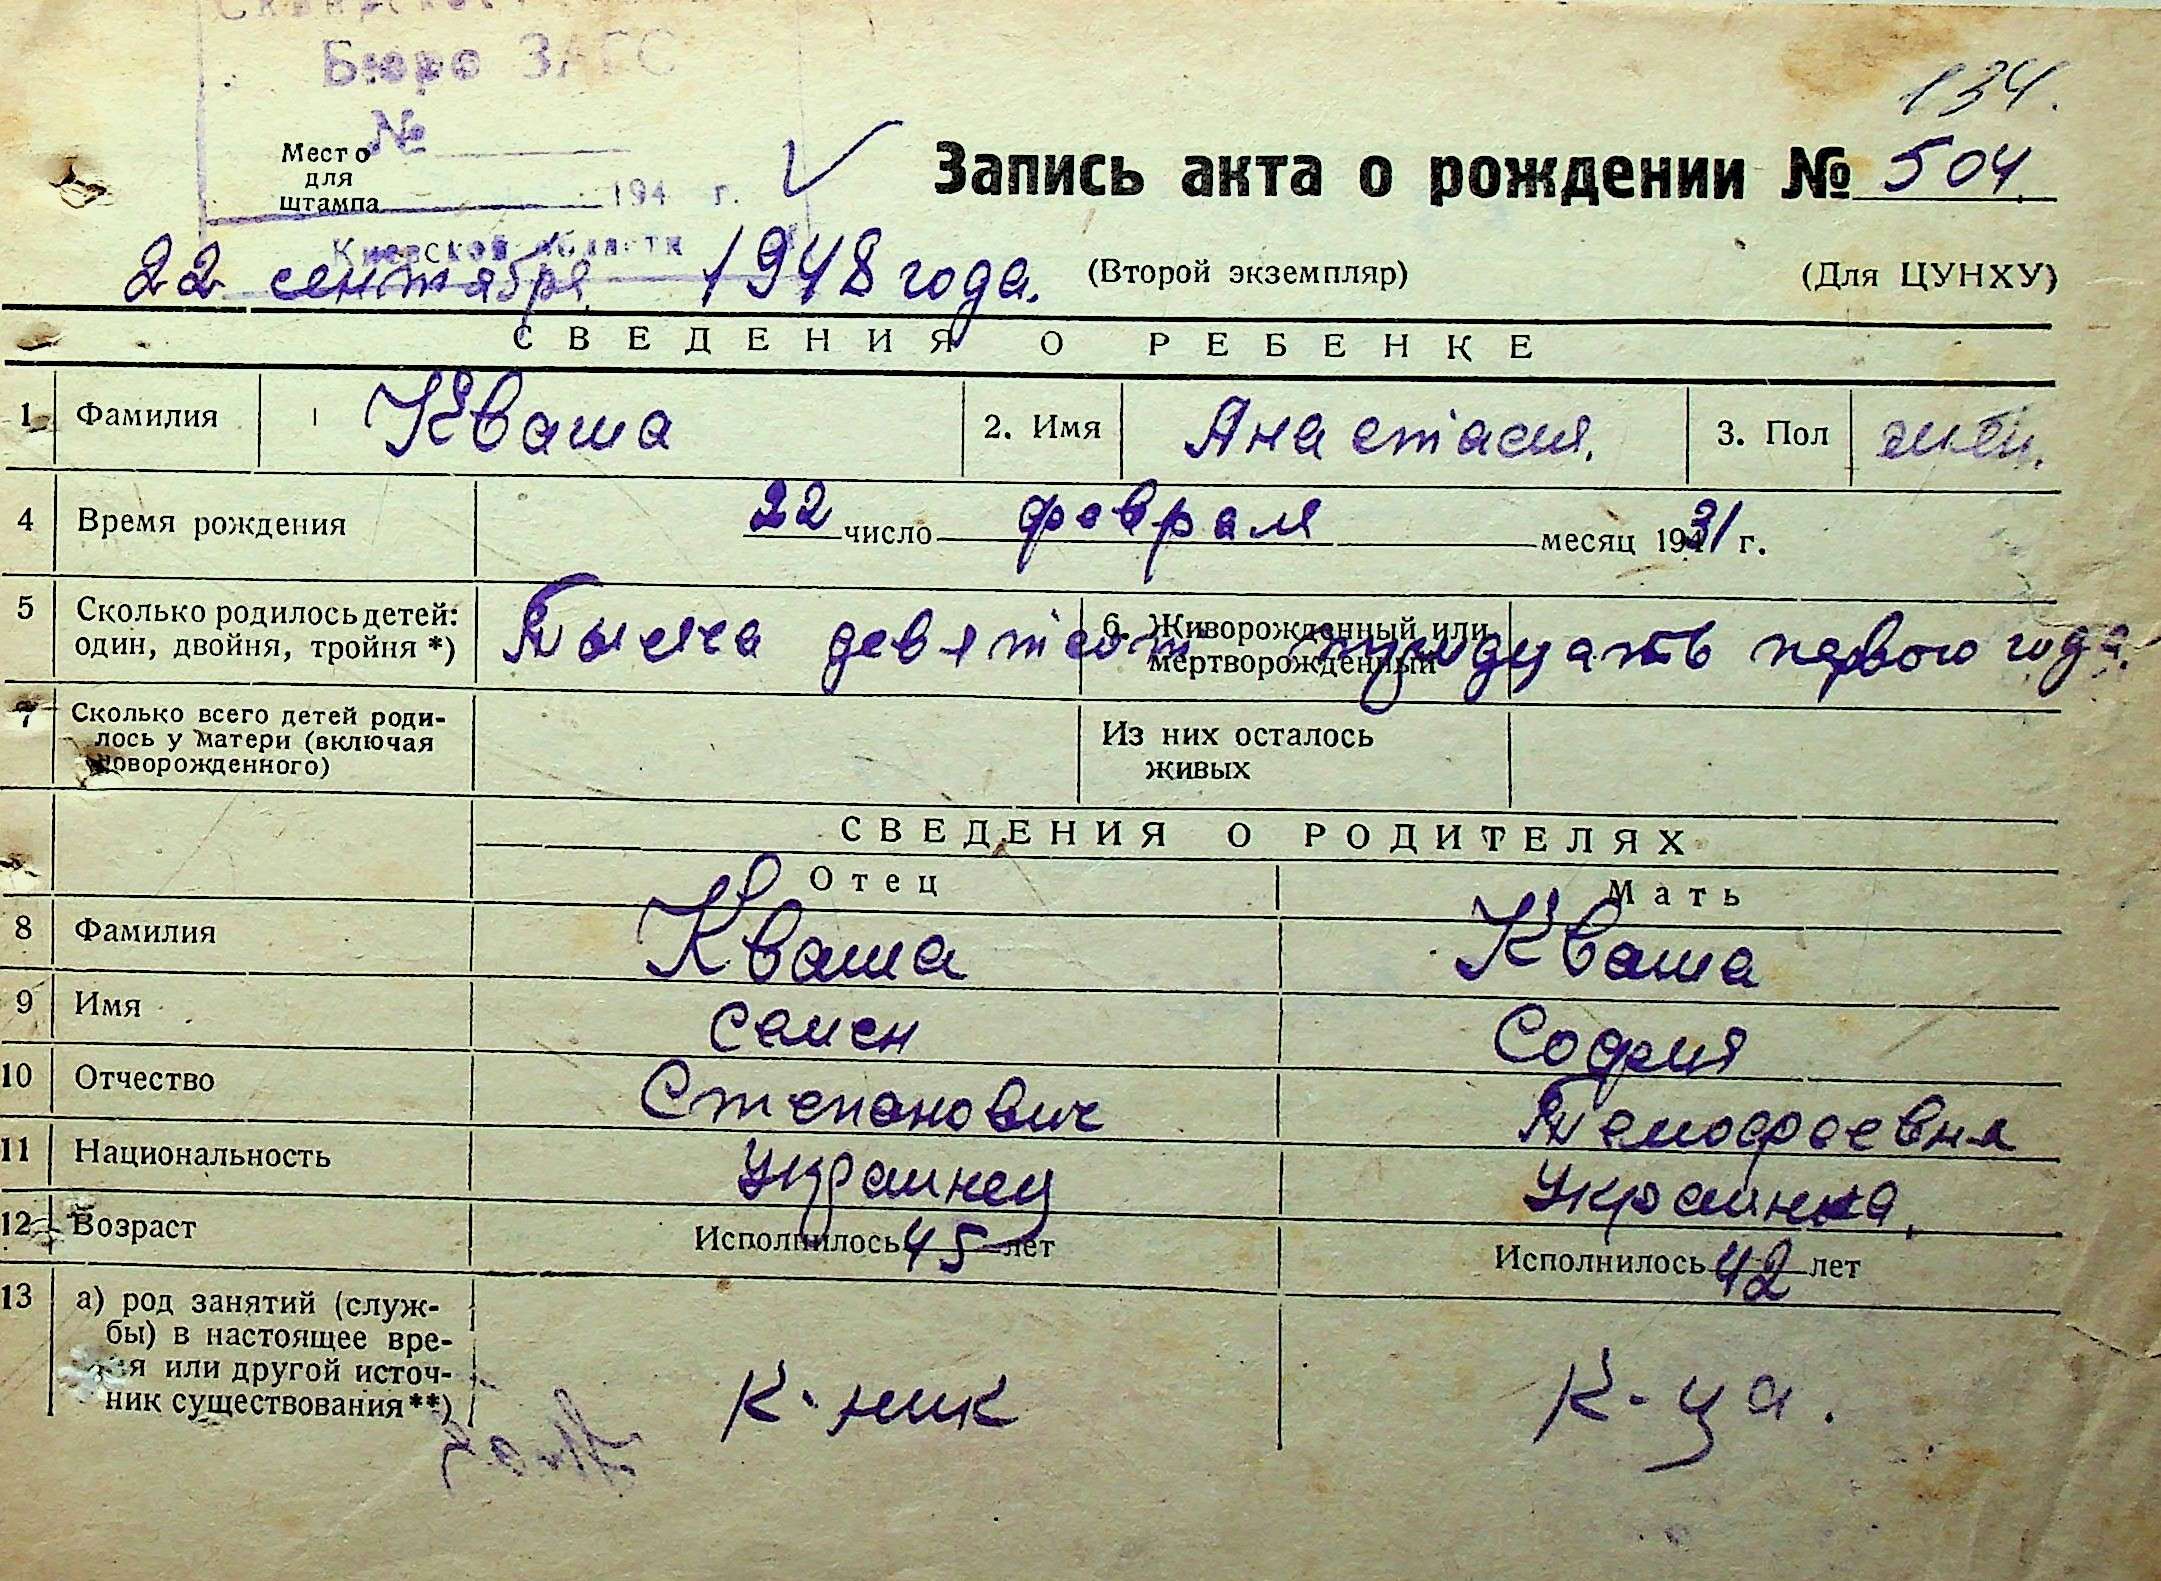 Бюро ЗАГС
134.
№
Место для штампа 194 г.
Запись акта о рождении № 504
Киевской области
22 сентября 1948 года.
(Второй экземпляр) (Для ЦУНХУ)
СВЕДЕНИЯ О РЕБЕНКЕ
1 Фамилия Кваша 2. Имя Анастасия. 3. Пол жен.
4 Время рождения 22 число февраля месяц 1931 г.
5 Сколько родилось детей: один, двойня, тройня *) 6. Живорожденный или мертворожденный
Тысяча девятсот тридцать первого года.
7 Сколько всего детей родилось у матери (включая новорожденного) Из них осталось живых
СВЕДЕНИЯ О РОДИТЕЛЯХ
Отец Мать
8 Фамилия Кваша Кваша
9 Имя Семен София
10 Отчество Степанович Темофеевня
11 Национальность Украинец Украинка.
12 Возраст Исполнилось 45 лет Исполнилось 42 лет
13 а) род занятий (служ-
бы) в настоящее вре-
мя или другой источ-
ник существования **)
к-ник к-ца.